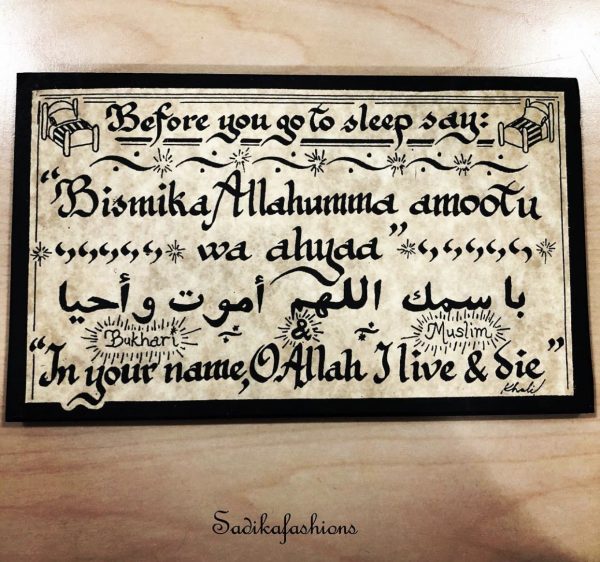 Before you go to sleep say:
"Bismika Allahumma amootu
wa ahyaa"
باسمك اللهم أموت وأحيا
Bukhari & Muslim
"In your name, O Allah I live & die"
Khalil
Sadikafashions